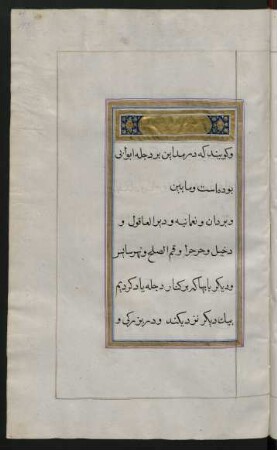 وکویند که در مداین بر دجله ایوانی
بوده است و مابین
و بردان و نعمانیه و دیر العاقول و
دخیل و جرجرا و فم الصلح و نهر سابس
و دیکر بایها که بر کنار دجله یاد کردیم
بیك دیکر نزدیکند و در بزرکی و